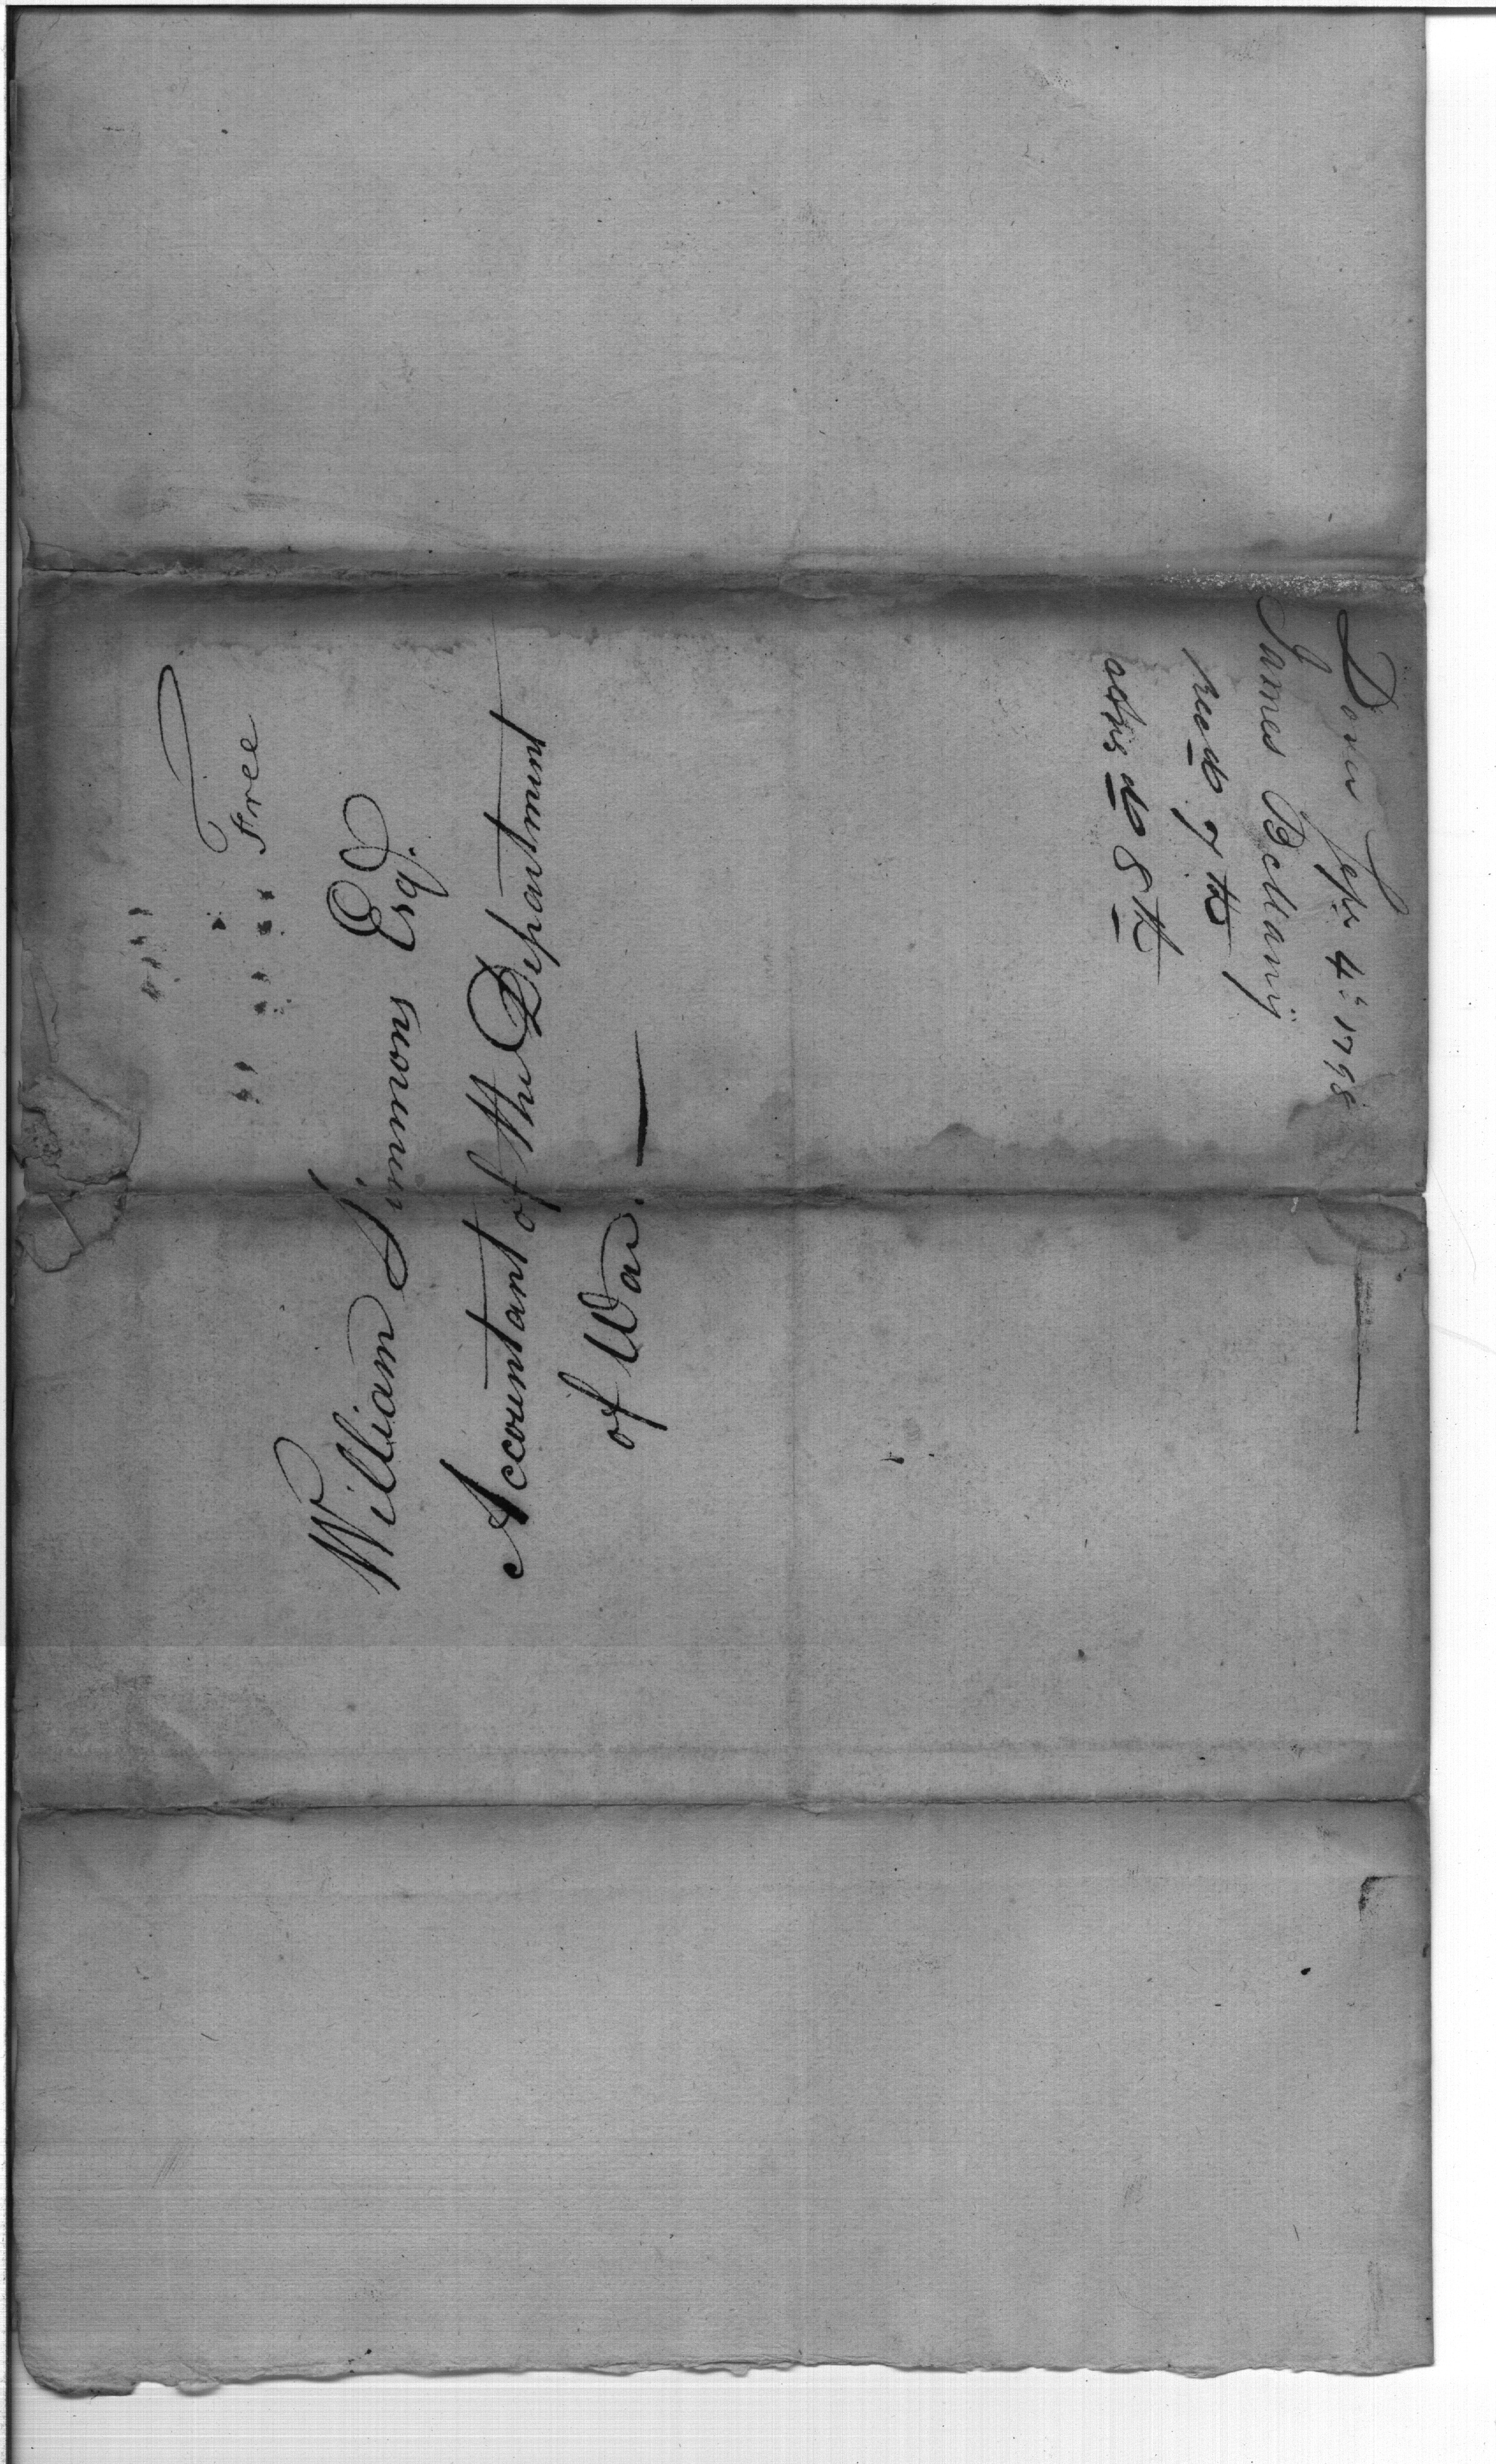 Free
William Simmons Esqr.
Accountant of the Department
of War.
Dover Sepr 4th 1798
James Bellamy
recd do 7th
do 8th